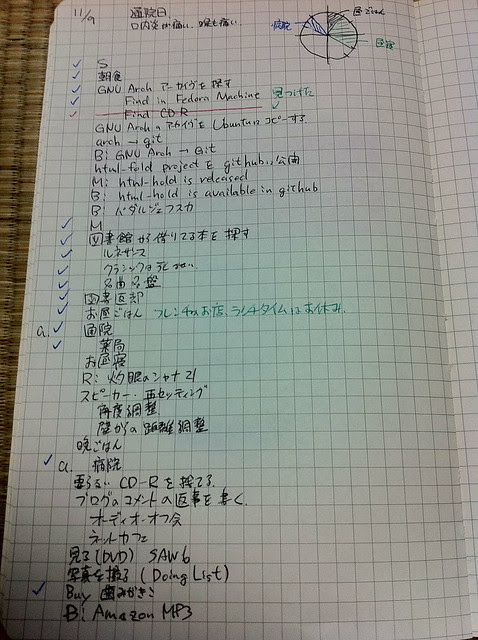 11/9 通院日
口内炎が痛い、喉も痛い
病院
昼ごはん
S
朝食
GNU Arch アーカイヴを探す
Find in Fedora Machine 見つけた
Find CD-R
GNU Arch の アーカイヴを Ubuntuに コピーする
arch → git
B: GNU Arch → Git
html-fold project を github に公開
M: html-hold is released
B: html-hold is available in github
B: バダルジェフスカ
M
図書館から借りてる本を探す
ルネサンス
クラシックは死なない
名曲名盤
図書返却
お昼ごはん フレンチのお店、ランチタイムはお休み.
a. 通院
薬局
お昼寝
R: 灼眼のシャナ 21
スピーカー・再セッティング
角度調整
壁からの距離調整
晩ごはん
a. 病院
要らない CD-R を捨てる.
ブログのコメントの返事を書く.
オーディオ・オフ会
ネットカフェ
見る (DVD) SAW 6
写真を撮る (Doing List)
Buy 歯みがき
B: Amazon MP3